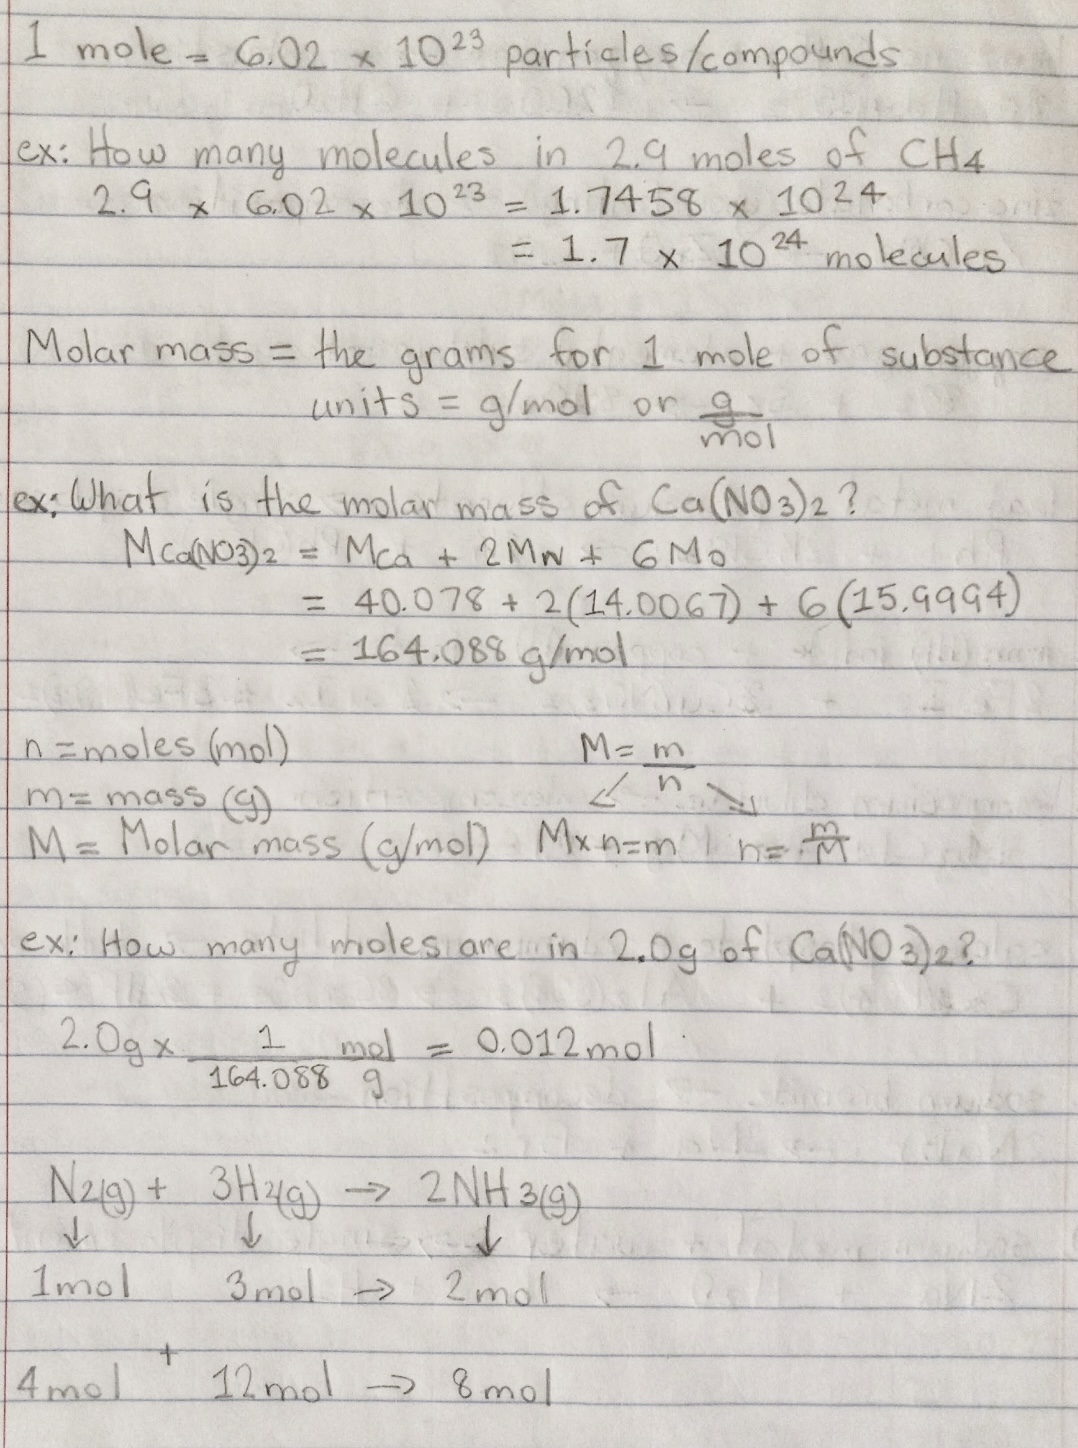 1 mole = 6.02 × 10²³ particles/compounds
ex: How many molecules in 2.9 moles of CH4
2.9 × 6.02 × 10²³ = 1.7458 × 10²⁴
= 1.7 × 10²⁴ molecules
Molar mass = the grams for 1 mole of substance
units = g/mol or g/mol
ex: What is the molar mass of Ca(NO3)2?
MCa(NO3)2 = MCa + 2MN + 6MO
= 40.078 + 2(14.0067) + 6(15.9994)
= 164.088 g/mol
n = moles (mol) M = m/n
m = mass (g)
M = Molar mass (g/mol) M×n=m n = m/M
ex: How many moles are in 2.0g of Ca(NO3)2?
2.0g × 1/164.088 mol/g = 0.012mol
N2(g) + 3H2(g) → 2NH3(g)
↓ ↓ ↓
1mol 3mol → 2mol
4mol + 12mol → 8mol